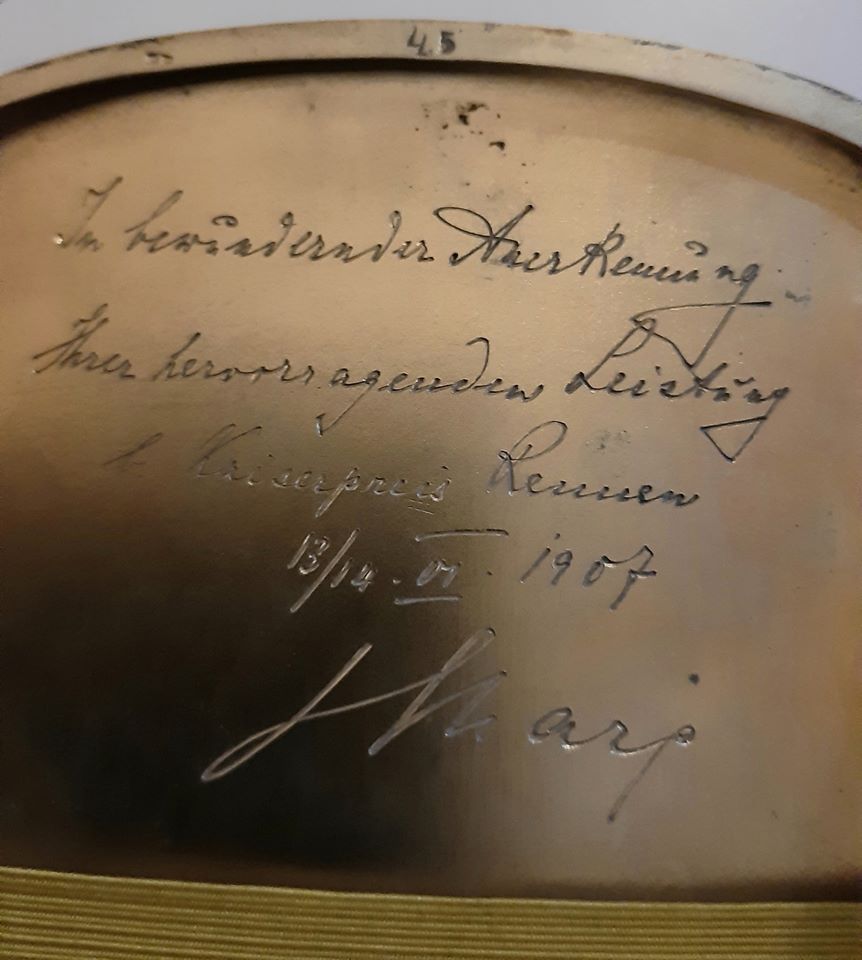 45
In bewundernder Anerkennung
Ihrer hervorragenden Leistung
b Kaiserpreis Rennen
13/14. VI. 1907